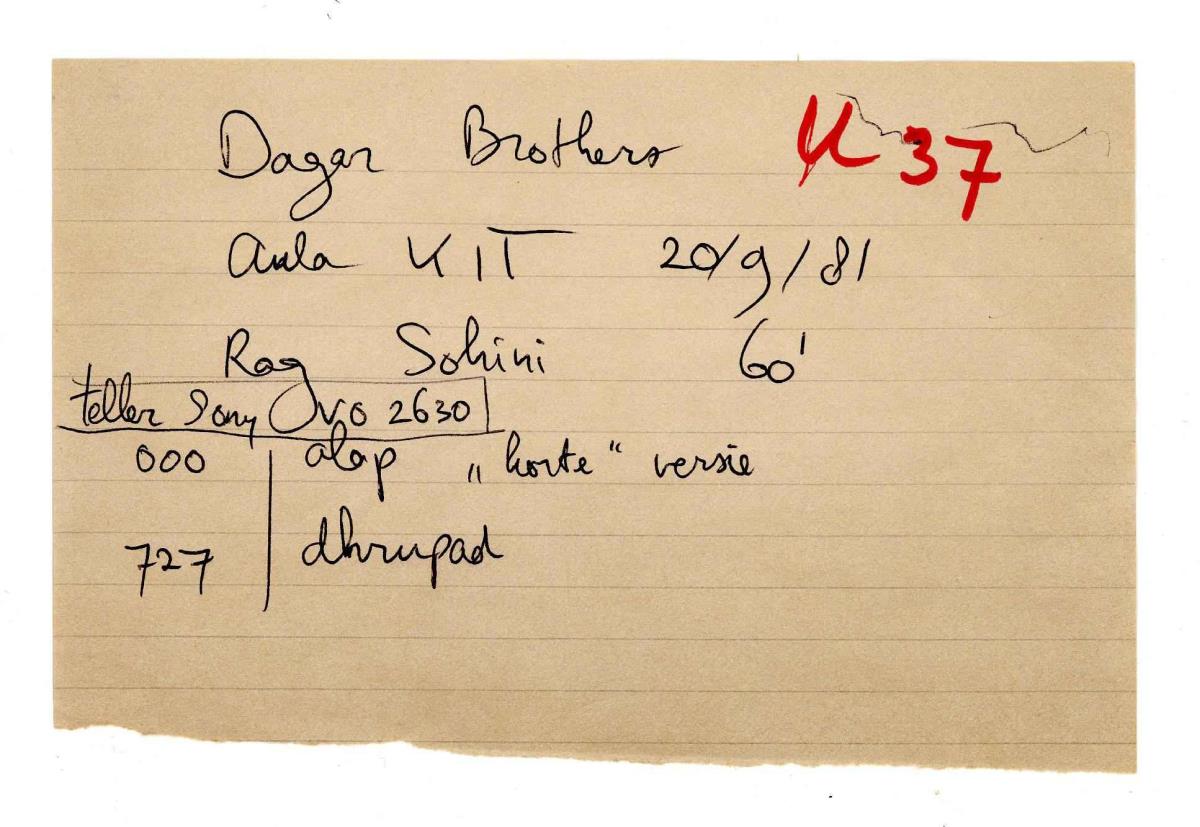 Dagar Brothers K 37
Aula KIT 20/9/81
Rag Sohini 60'
teller Sony VO 2630
000 alap „korte“ versie
727 dhrupad